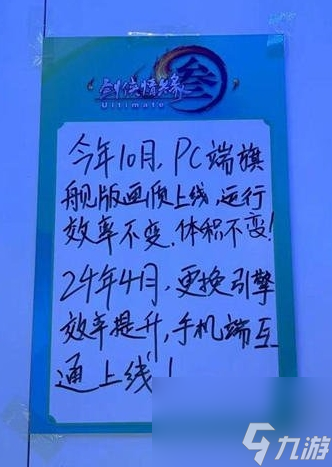 剑侠情缘 叁
Ultimate
今年10月，PC端旗
舰版画质上线，运行
效率不变，体积不变！
24年4月，更换引擎
效率提升，手机端互
通上线！
九游